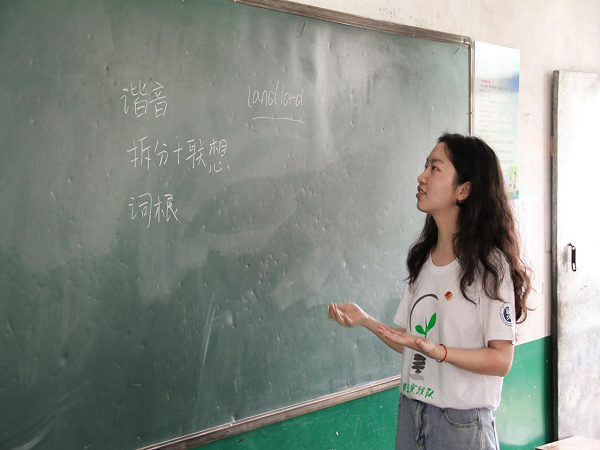 谐音 landlord
拆分+联想
词根